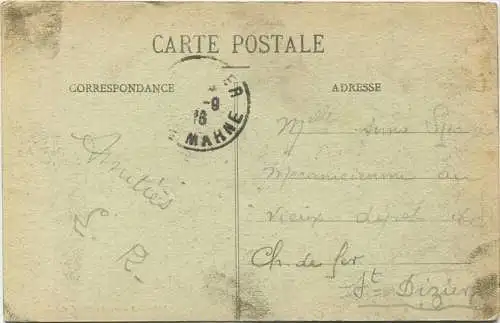 CARTE POSTALE
CORRESPONDANCE
ADRESSE
ER
-9
18
MARNE
Amitiés
S. R.
Melle
Mecanicienne au
vieux depot de
Ch. de fer
St Dizier